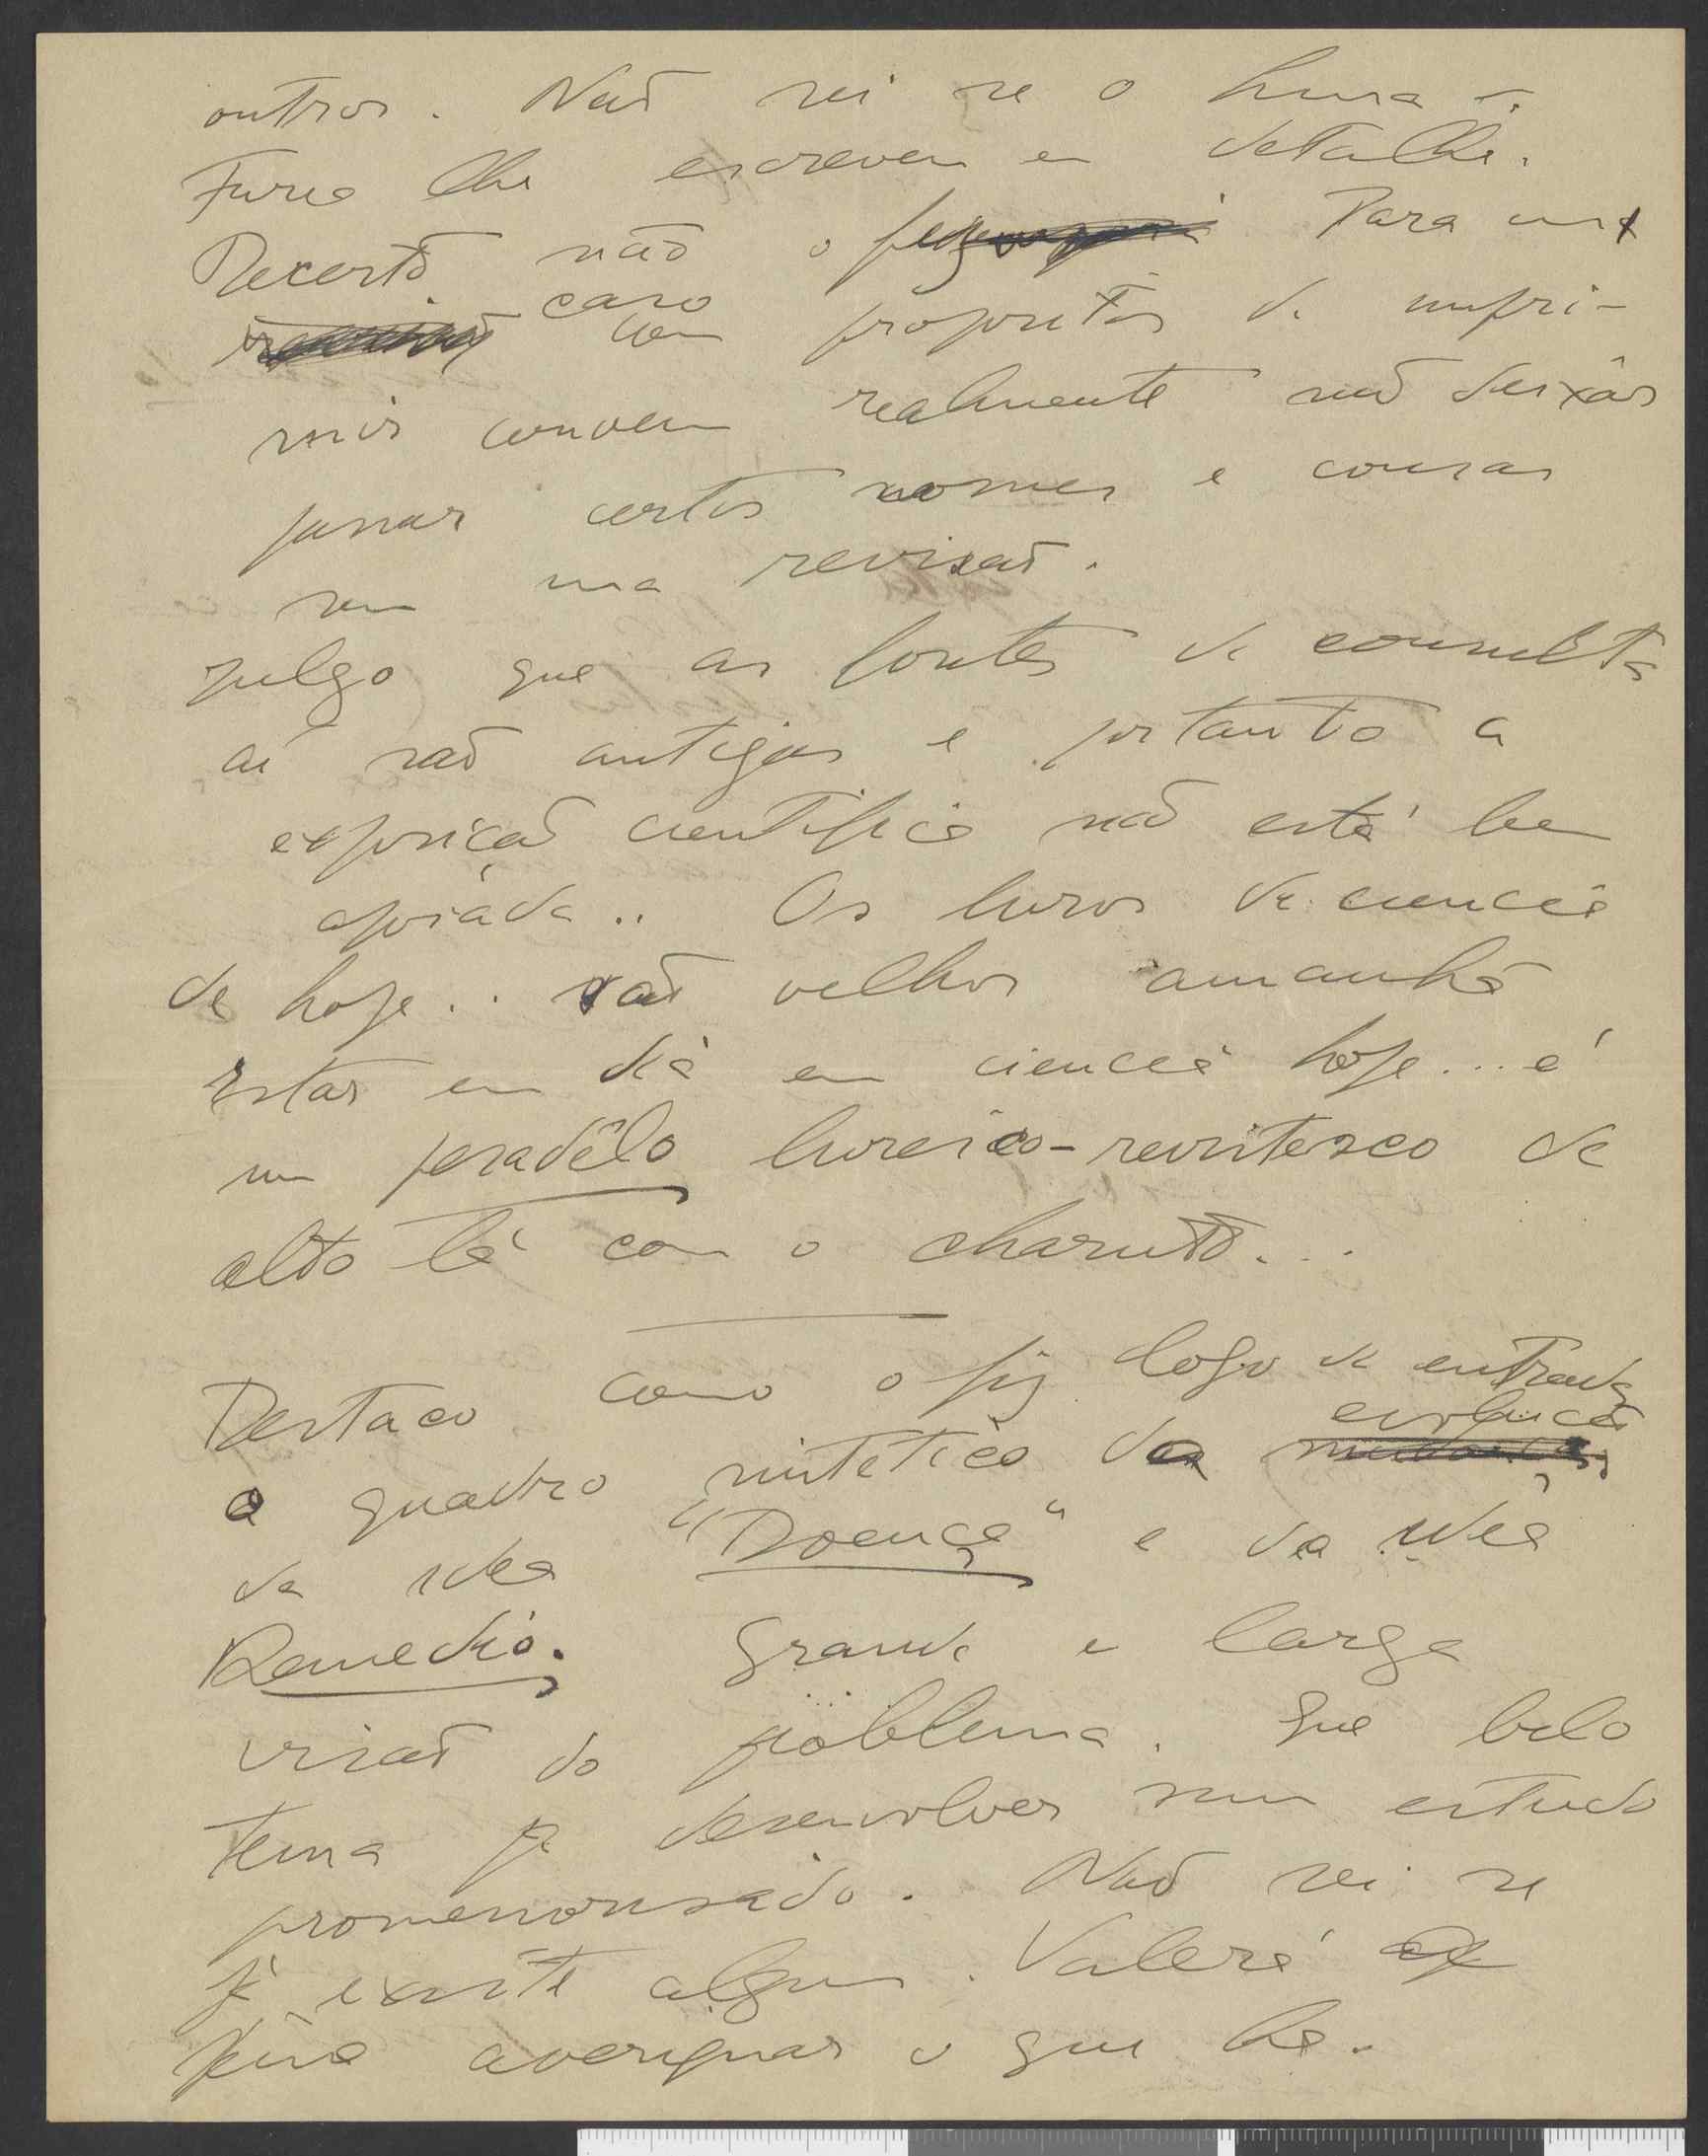 outros. Não sei se o
Furio lhe escreveu em detalhe.
Decerto não o fez Para um
caso com propositos de supri-
mir convem realmente não deixar
passar certos nomes e cousas
sem uma revisão.
Julgo que as fontes de consulta
aí são antigas e portanto a
exposição cientifica não está bem
apoiáda.. Os livros de ciencia
de hoje.. são velhos amanhã
Estar em dia em ciencia hoje... é
um pesadêlo livreico-revistesco de
alto lá com o charuto...
Destaco como o fiz logo de entrada
evolução
o quadro sintético da mudança
da idea "Doença" e da idea
Remedio. Grande e larga
visão do problema. Que belo
tema pª desenvolver num estudo
promenorisádo. Não sei se
já existe algum. Valerá a
pêna averiguar o que há.